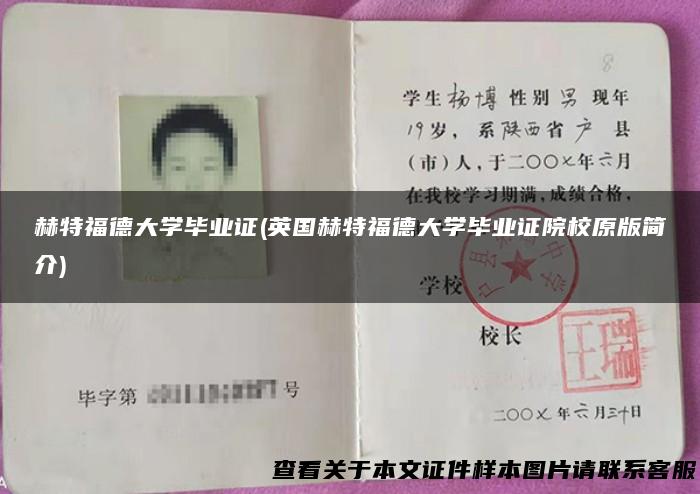 8
学生杨博性别男现年
19岁，系陕西省户县
(市)人,于二〇〇七年六月
在我校学习期满,成绩合格,
赫特福德大学毕业证(英国赫特福德大学毕业证院校原版简
介)
户县
中学
学校
校长
毕字第
号
二〇〇七年六月三十日
查看关于本文证件样本图片请联系客服